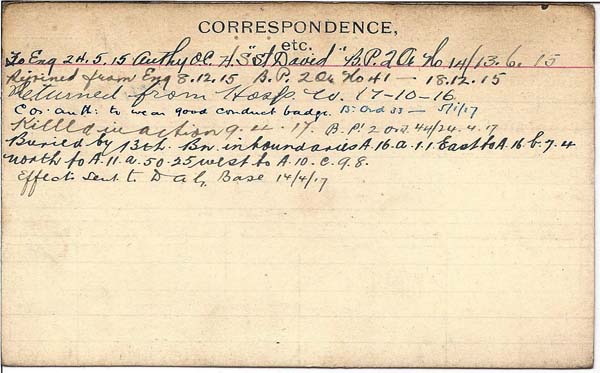 CORRESPONDENCE,
etc.
To Eng 24.5.15 Authy O.C. H.S "St David" B.P. 2 Or No 14/13.6.15
Rejoined from Eng 8.12.15 B.P. 2 Or No 41 — 18.12.15
Returned from Hosp 17-10-16
Cor: auth: to wear good conduct badge. B: Ord 33 — 5/1/17
Killed in action 9.4.17. B.P. 2 Ord 44/24.4.17
Buried by 13th. Bn. in boundaries A.16.a.1.1 East to A.16.b.7.4
North to A.11.a.50.25 west to A.10.c.9.8.
Effects sent to D A G, Base 14/4/17